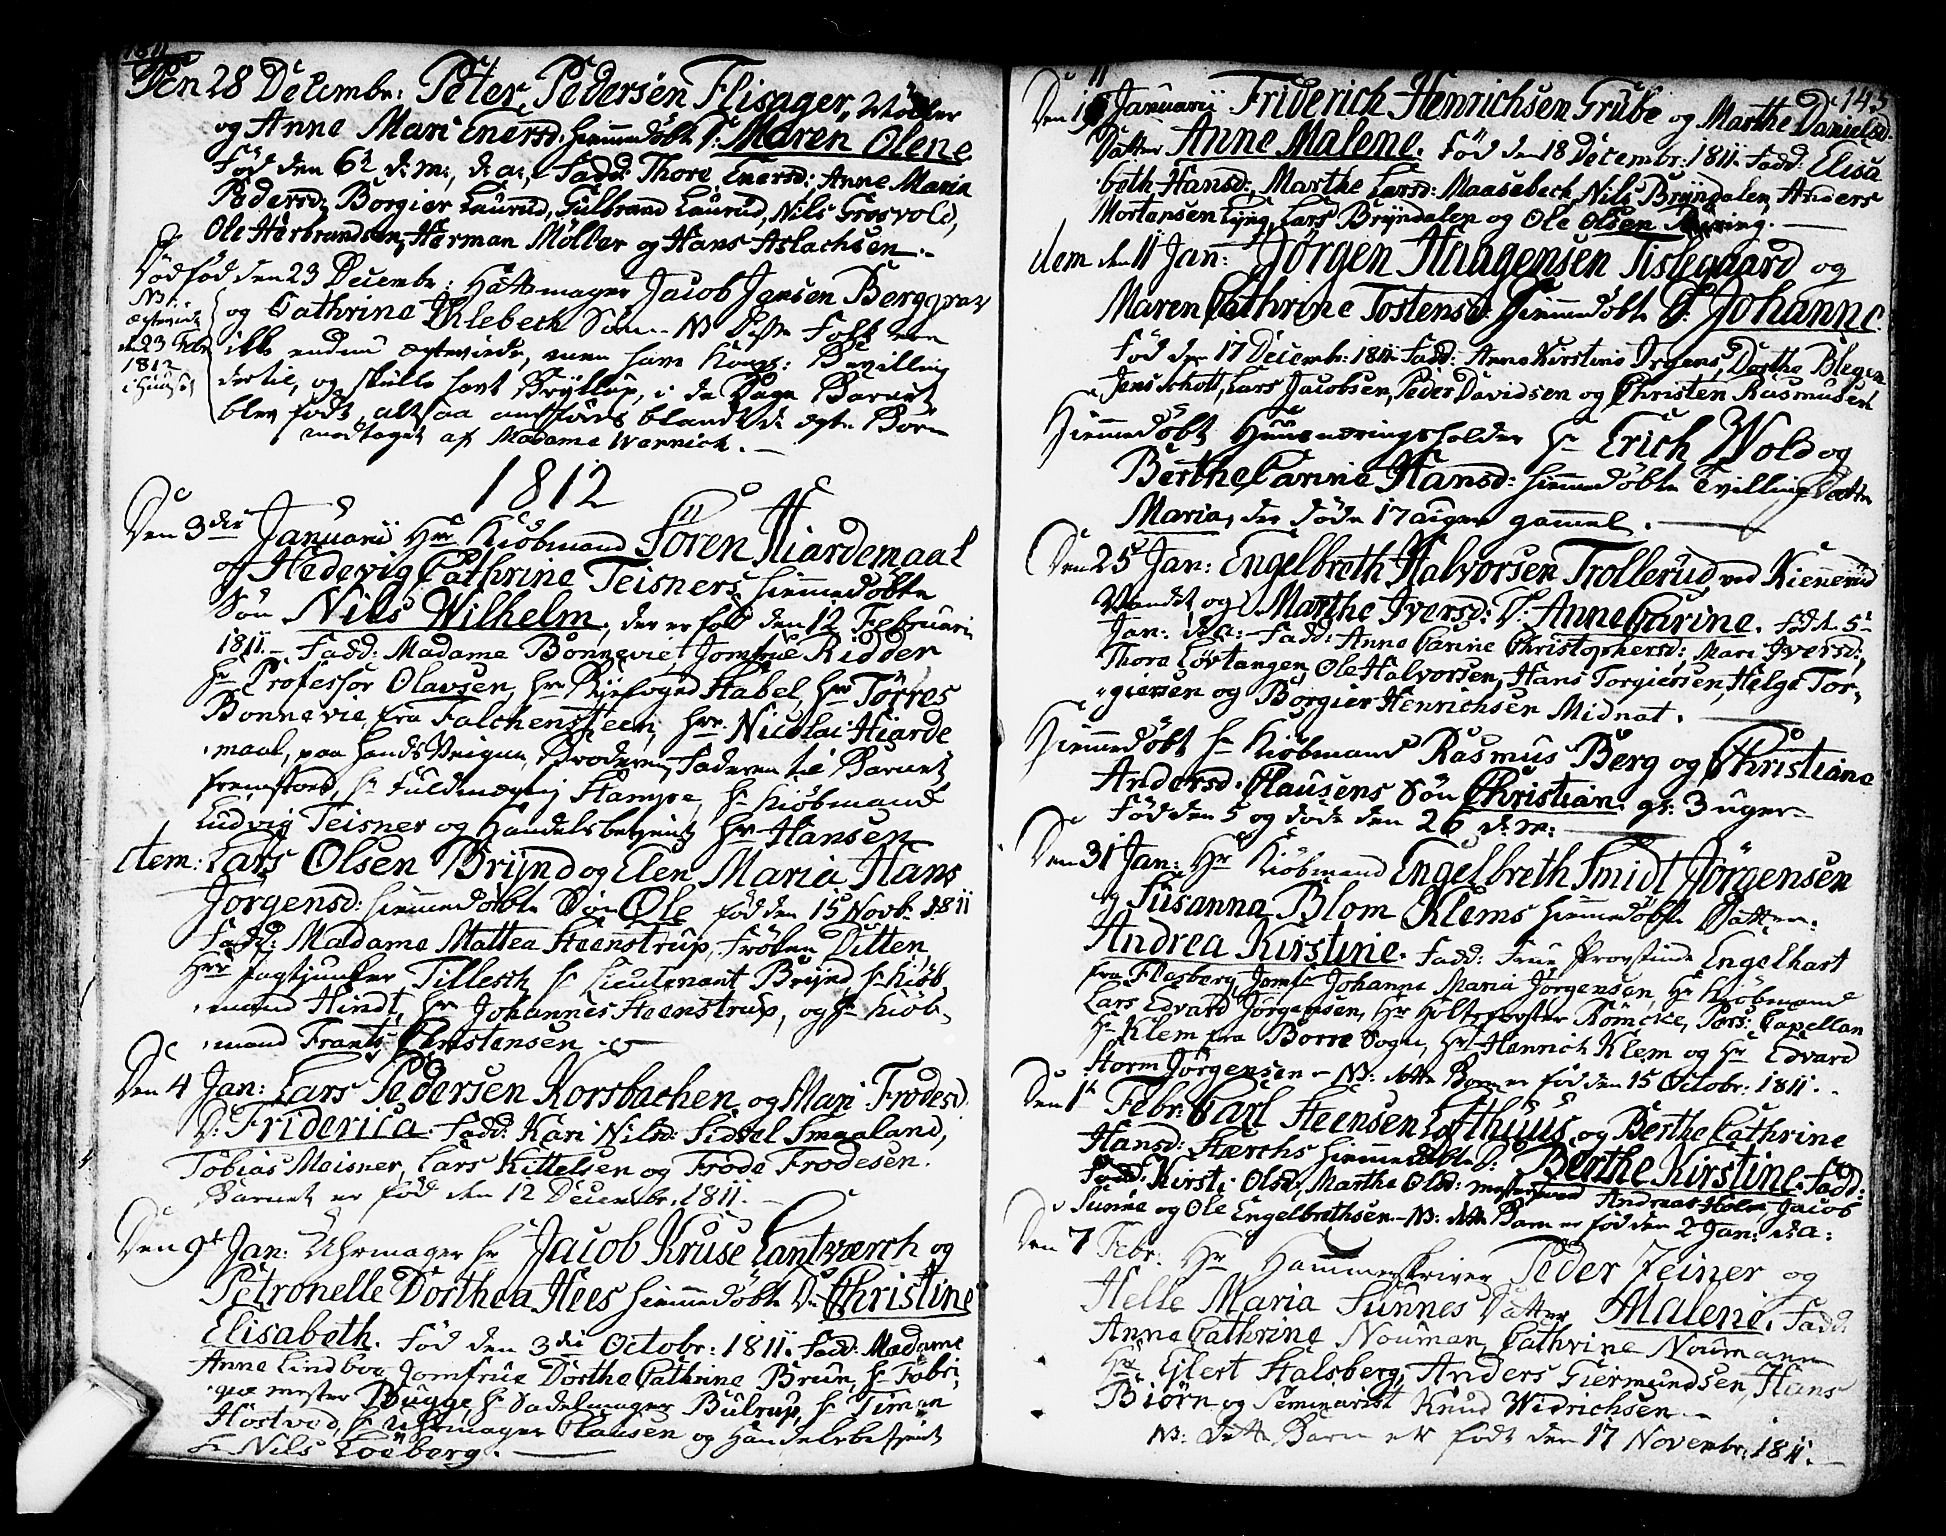 1811
Den 28 Decembr: Peter Pedersen Flisager, Møller
og Anne Mari Enersd: hiemmedøbte D: Maren Olene
Fød den 6te d: m:, d: a:, Fadd: Thore Enersd: Anne Maria
Pedersd: Borgier Laurud, Gulbrand Laurud, Nils Grosvold,
Ole Herbrandsen, Herman Møller og Hans Aslachsen.
Dødfød den 23 Decembr: Hattemager Jacob Jensen Berggrav
og Cathrine Ihlebech Søn. NB Disse Folk ere
NB:
ægteviede
d. 23 Febr
1812
i Huuset
ikke endnu ægteviede, men have Kongl: Bevilling
dertil, og skulle havt Bryllup, i de Dage Barnet
blev født, altsaa anføres blandt de ægte Børn
modtaget af Madame Warnich.
1812
Den 3die Januarii Hr Kiøbmand Søren Hiardemaal
og Hedevig Cathrine Teisners hiemmedøbte
Søn Nils Wilhelm, der er fød den 12 Februarii
1811. Fadd: Madame Bonnevie, Jomfrue Ridder
Hr Professor Olavsen, Hr Byefoged Stabel, Hr Tørres
Bonnevie fra Falchensteen, Hr Nicolai Hiarde
maal, paa hands Vegne Broderen, Faderen til Barnet
fremstoed, Hr Fuldmægtig Stampe, Hr Kiøbmand
Ludvig Teisner og Handelsbetient Hr Hansen
Item: Lars Olsen Brÿnd og Elen Maria Hans
Jørgensd: hiemmedøbte Søn Ole fød den 15 Novb. 1811
Fadd: Madame Mattea Steenstrup, Frøken Ditten,
Hr Jagtjunker Tillesch, Hr Lieutenant Brÿnd, Hr Kiøb
mand Hindt, Hr Johannes Steenstrup, og Hr Kiøb
mand Frants Christensen
Den 4 Jan: Lars Pedersen Korsbachen og Mari Frodesd.
D: Friderica. Fadd: Kari Nilsd: Sidsel Smaaland,
Tobias Meisner, Lars Kittelsen og Frode Frodesen.
Barnet er fød den 12 Decembr. 1811.
Den 9de Jan: Uhrmager Hr Jacob Kruse Lantværch og
Petronelle Dorthea Hees hiemmedøbte D: Christine
Elisabeth. Fød den 3die Octobr: 1811. Fadd: Madame
Anne Lindboe, Jomfrue Dorthe Cathrine Brun, Hr Fabri
que mester Bugge, Hr Sadelmager Bulrup, Hr Timan
Høstved, Hr Uhrmager Clausen og Handelsbetient
Hr Nils Loeberg.
145
Den 11 Januarii Friderich Henrichsen Grube og Marthe Danielsd:
Datter Anne Malene. Fød den 18 Decembr: 1811. Fadd: Elisa
beth Hansd:, Marthe Larsd: Maasebech, Nils Bryndalen, Anders
Mortensen Lyng, Lars Bryndalen og Ole Olsen ring.
Item den 11 Jan: Jørgen Haagensen Tislegaard og
Maren Cathrine Tostensd: hiemmedøbte D: Johanne
Fød den 17 Decembr: 1811. Fadd: Anne Kirstine Irgens, Dorthe Blegen
Jens Schott, Lars Jacobsen, Peder Davidsen og Christen Rasmusen
Hiemmedøbt Huusnæringsholder Hr Erich Wold og
Berthe Carine Hansd: hiemmedøbte Tvilling Datter
Maria, der døde 17 uger gammel.
Den 25 Jan: Engelbreth Halvorsen Trollerud ved Kiennerud
Vandet og Marthe Iversd: D: Anne Carine. fød d. 5te
Jan: d: a: Fadd: Anne Carine Christophersd:, Mari Iversd:,
Thore Løvtangen, Ole Halvorsen, Hans Torgiersen, Helge Tor
giersen og Borgier Henrichsen Midnat.
Hiemmedøbt Hr Kiøbmand Rasmus Berg og Christiane
Andersd: Clausens Søn Christian. gl: 3 uger
Fød den 5 og døde den 26 d: m:
Den 31 Jan: Hr Kiøbmand Engelbreth Smidt Jørgensen
og Susanna Blom Klems hiemmedøbte Datter
Andrea Kirstine. Fadd: Frue Provstinde Engelhart
fra Flesberg, Jomfr Johanne Maria Jørgensen, Hr Kiøbmand
Lars Edvard Jørgensen, Hr Holtzforster Rømcke, Pers: Capellan
Hr Klem fra Borre Sogn, Hr Henrich Klem og Hr Edvard
Storm Jørgensen. NB: dette Barn er fød den 15 Octobr: 1811.
Den 1te Febr: Carl Steensen Lofthuus og Berthe Cathrine
Hansd: Stærchs hiemmedøbte D: Berthe Kirstine. Fadd:
Fadd: Kirsti Olsd:, Marthe Olsd: mestersvend Andreas Holm, Jacob
Sunne og Ole Engelbrethsen. NB: dette Barn er fød den 2 Jan: d: a:
Den 7 Febr: Hr Hammerskriver Peder Zeiner og
Helle Maria Sunnes Datter Malene. Fadd:
Anne Cathrine Nouman, Cathrine Noumann
Hr Eilert Stalsberg, Anders Giermundsen, Hans
Biørn og Seminarist Knud Widrichsen
NB: Dette Barn er født den 17 Novembr: 1811.